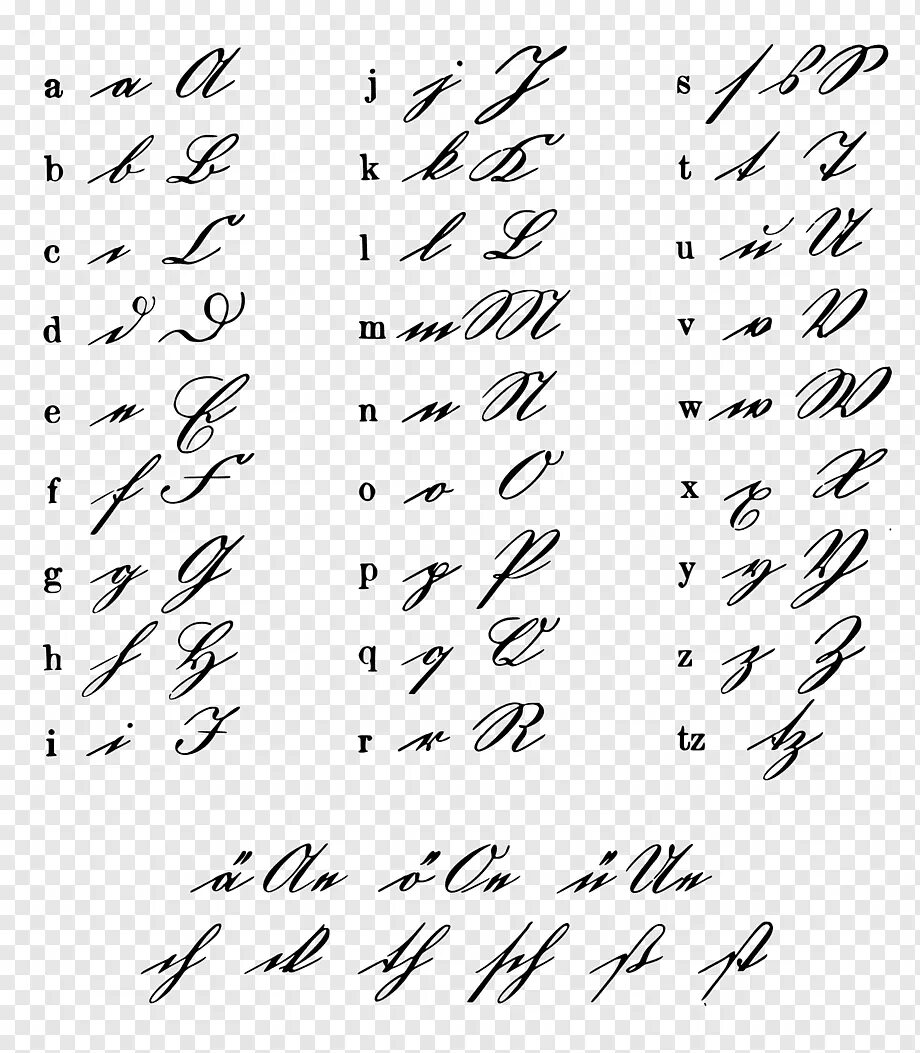 a a A j j J s ſ s S
b b B k k K t t T
c c C l l L u u U
d d D m m M v v V
e e E n n N w w W
f f F o o O x x X
g g G p p P y y Y
h h H q q Q z z Z
i i I r r R tz tz
ä Ae ö Oe ü Ue
ch ck th sch ß st